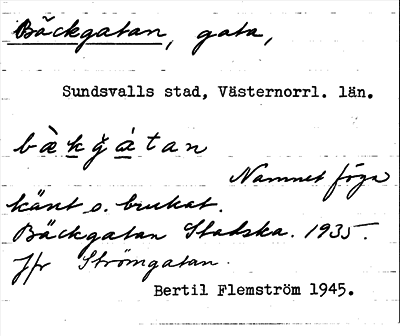 Bäckgatan, gata,
Sundsvalls stad, Västernorrl. län.
bæ̀kg̀átan
Namnet föga
känt o. brukat.
Bäckgatan Stadska. 1935.
Jfr Strömgatan.
Bertil Flemström 1945.